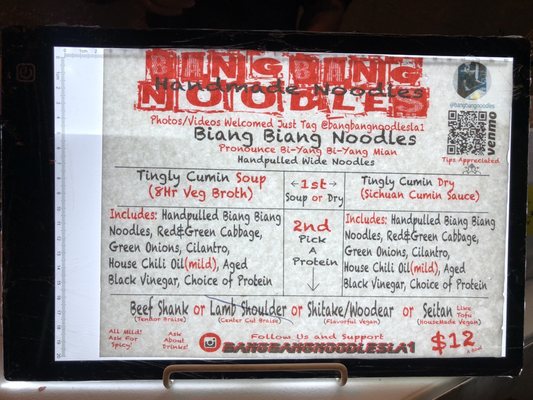 BANG BANG
NOODLES
Handmade Noodles
Photos/Videos Welcomed Just Tag @bangbangnoodlesla1
Biang Biang Noodles
Pronounce Bi-Yang Bi-Yang Mian
Handpulled Wide Noodles
@bangbangnoodles
venmo
Tips Appreciated
Tingly Cumin Soup
(8Hr Veg Broth)
1st
Soup or Dry
Tingly Cumin Dry
(Sichuan Cumin Sauce)
Includes: Handpulled Biang Biang
Noodles, Red&Green Cabbage,
Green Onions, Cilantro,
House Chili Oil(mild), Aged
Black Vinegar, Choice of Protein
2nd
Pick
A
Protein
Includes: Handpulled Biang Biang
Noodles, Red&Green Cabbage,
Green Onions, Cilantro,
House Chili Oil(mild), Aged
Black Vinegar, Choice of Protein
Beef Shank or Lamb Shoulder or Shitake/Woodear or Seitan Like Tofu
(Tendor Braise) (Center Cut Braise) (Flavorful Vegan) (HouseMade Vegan)
All Mild!
Ask For
Spicy!
Ask
About
Drinks!
Follow Us and Support
BANGBANGNOODLESLA1
$12
A Bowl